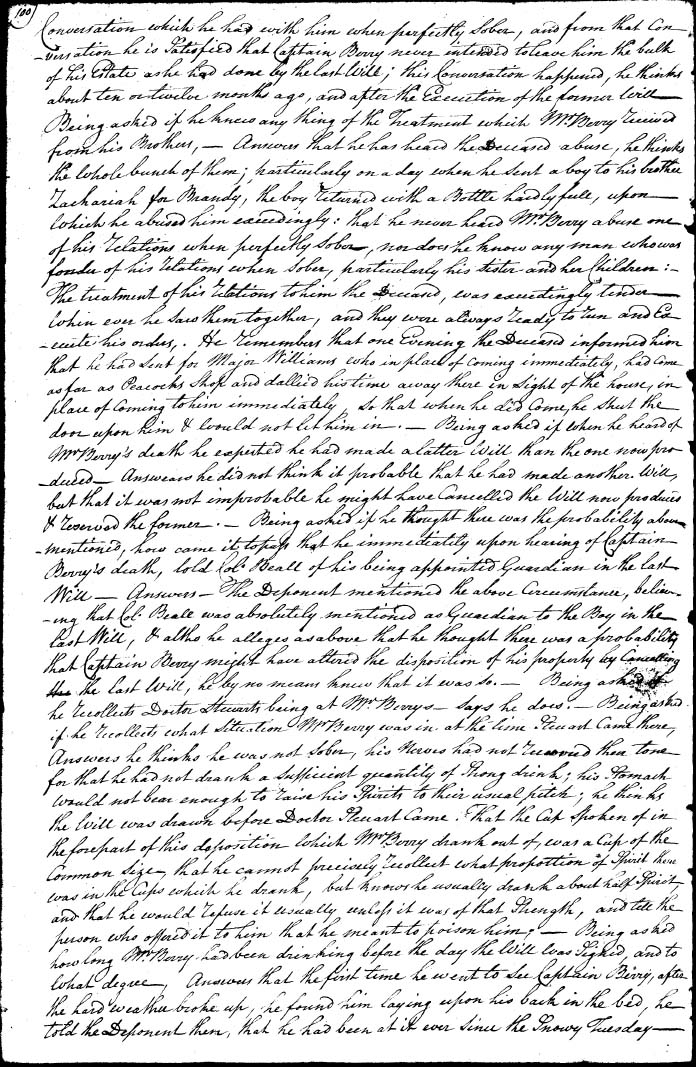 100
Conversation which he had with him when perfectly Sober, and from that Con
-versation he is Satisfied that Captain Berry never intended to leave him the bulk
of his Estate as he had done by the last Will; this Conversation happened, he thinks
about ten or twelve months ago, and after the Execution of the former Will —
Being asked if he knows any thing of the Treatment which Mr. Berry Received
from his Brothers, — Answers that he has heard the Deceased abuse, he thinks
the whole bunch of them; particularly on a day when he Sent a boy to his brother
Zachariah for Brandy, the boy returned with a Bottle hardly full, upon
which he abused him exceedingly: that he never heard Mr. Berry abuse one
of his relations when perfectly Sober, nor does he know any man who was
fonder of his relations when Sober, particularly his Sister and her Children: —
The treatment of his relations to him the Deceased, was exceedingly tender —
when ever he Saw them together, and they were always ready to run and Ex
-ecute his orders,. He remembers that one Evening the Deceased informed him
that he had sent for Major Williams who in place of coming immediately, had come
as far as Peacocks Shop and dallied his time away there in Sight of the house, in
place of Coming to him immediately So that when he did Come, he Shut the
door upon him & would not let him in. — Being asked if when he heard of
Mr. Berry's death he expected he had made a latter Will than the one now pro
-duced — Answears he did not think it probable that he had made another Will,
but that it was not improbable he might have Cancelled the Will now produced
& reserved the former. — Being asked if he thought there was the probability above
-mentioned, how came it to pass that he immediately upon hearing of Captain
Berry's death, told Col. Beall of his being appointed Guardian in the last
Will — Answers — The Deponent mentioned the above Circumstance, believ-
-ing that Col. Beall was absolutely mentioned as Guardian to the Boy in the
last Will, & altho he alleges as above that he thought there was a probability
that Captain Berry might have altered the disposition of his property by Cancelling
the last Will, he by no means knew that it was so. — Being asked if
he recollects Doctor Steuarts being at Mr. Berrys — says he does. — Being asked
if he recollects what Situation Mr. Berry was in at the time Steuart Came there,
Answers he thinks he was not Sober, his Nerves had not recovered their tone
for that he had not drank a Sufficient quantity of Strong drink; his Stomach
would not bear enough to raise his Spirits to their usual pitch; he thinks
the Will was drawn before Doctor Steuart Came. That the Cup Spoken of in
the forepart of this deposition which Mr. Berry drank out of, was a Cup of the
Common Size, that he cannot precisely recollect what proportion of Spirit there
was in the Cups which he drank, but knows he usually drank about half Spirit
and that he would refuse it usually unless it was of that Strength, and tell the
person who offered it to him that he meant to poison him; — Being asked
how long Mr. Berry had been drinking before the day the Will was Signed, and to
what degree, Answers that the first time he went to See Captain Berry, after
the hard weather broke up, he found him laying upon his back in the bed, he
told the Deponent then, that he had been at it ever Since the Snowy Tuesday —